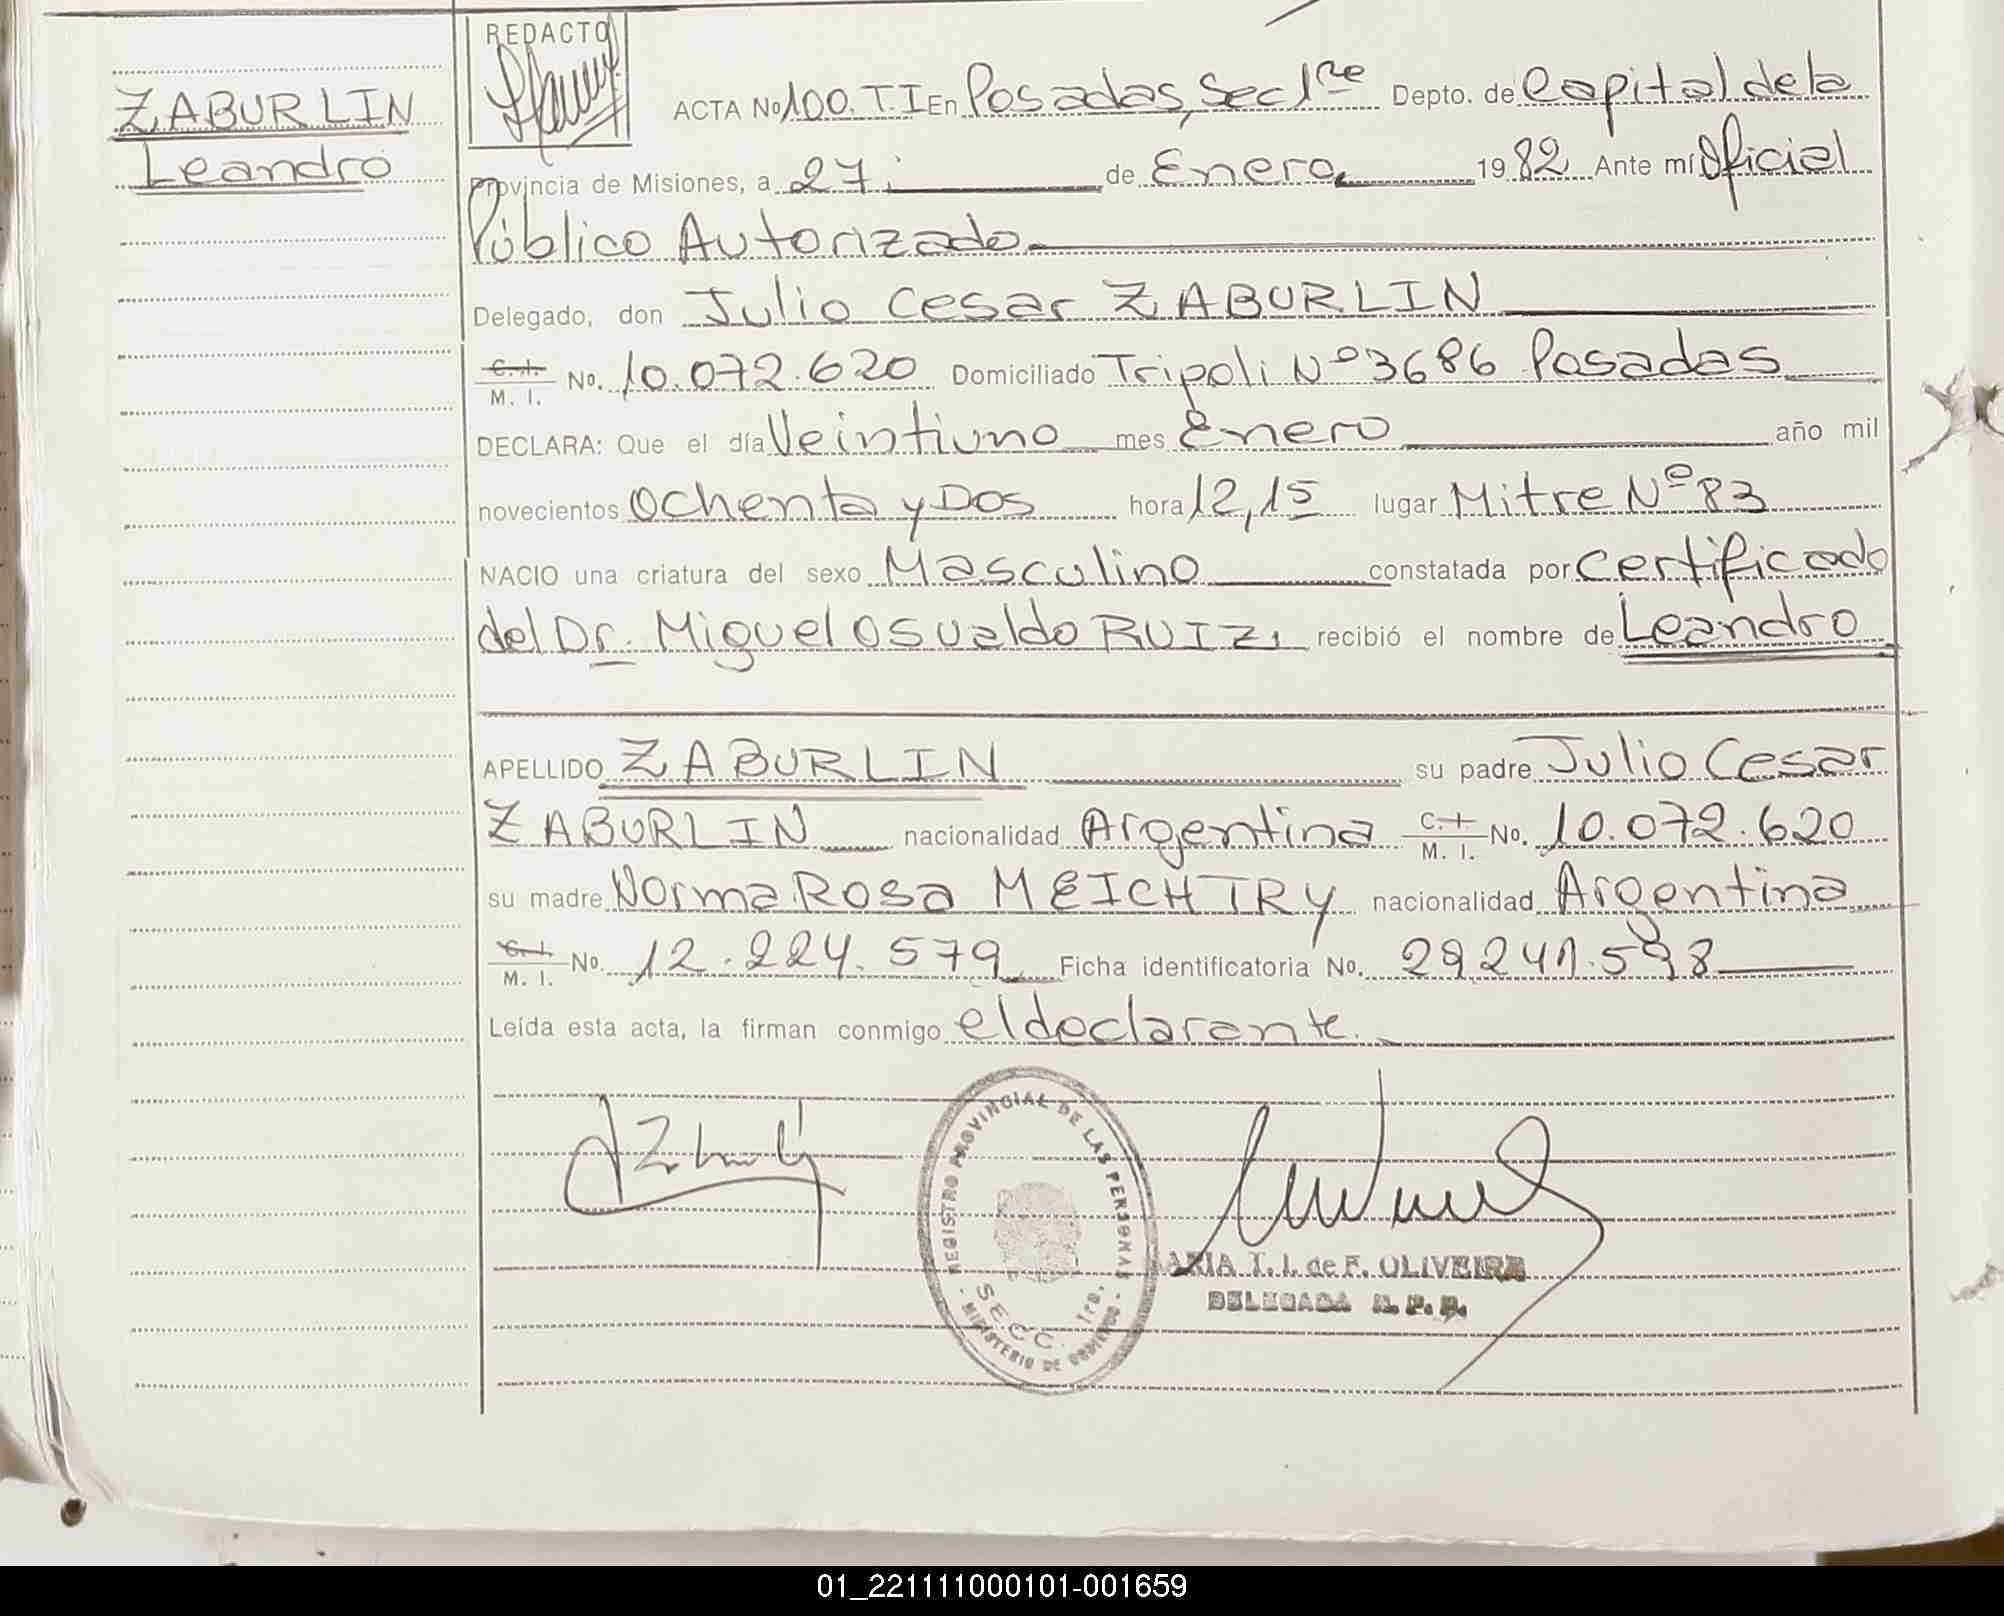 ZABURLIN
Leandro
REDACTO
ACTA No 100. T. I En Posadas, Sec 1ra Depto. de Capital de la
Provincia de Misiones, a 27 de Enero 1982 Ante mí Oficial
Público Autorizado
Delegado, don Julio Cesar ZABURLIN
C. I.
M. I. No. 10.072.620 Domiciliado Tripoli Nº 3686 Posadas
DECLARA: Que el día Veintiuno mes Enero año mil
novecientos Ochenta y Dos hora 12,15 lugar Mitre Nº 83
NACIO una criatura del sexo Masculino constatada por Certificado
del Dr. Miguel Osvaldo RUIZ, recibió el nombre de Leandro
APELLIDO ZABURLIN su padre Julio Cesar
ZABURLIN nacionalidad Argentina C. I.
M. I. No. 10.072.620
su madre Norma Rosa MEICHTRY nacionalidad Argentina
C. I.
M. I. No. 12.224.579 Ficha identificatoria No.
Leída esta acta, la firman conmigo el declarante.
REGISTRO PROVINCIAL DE LAS PERSONAS
SECC. 1ra.
- MINISTERIO DE GOBIERNO -
ARIA T. I. de F. OLIVEIRA
DELEGADA R. P. P.
01_221111000101-001659